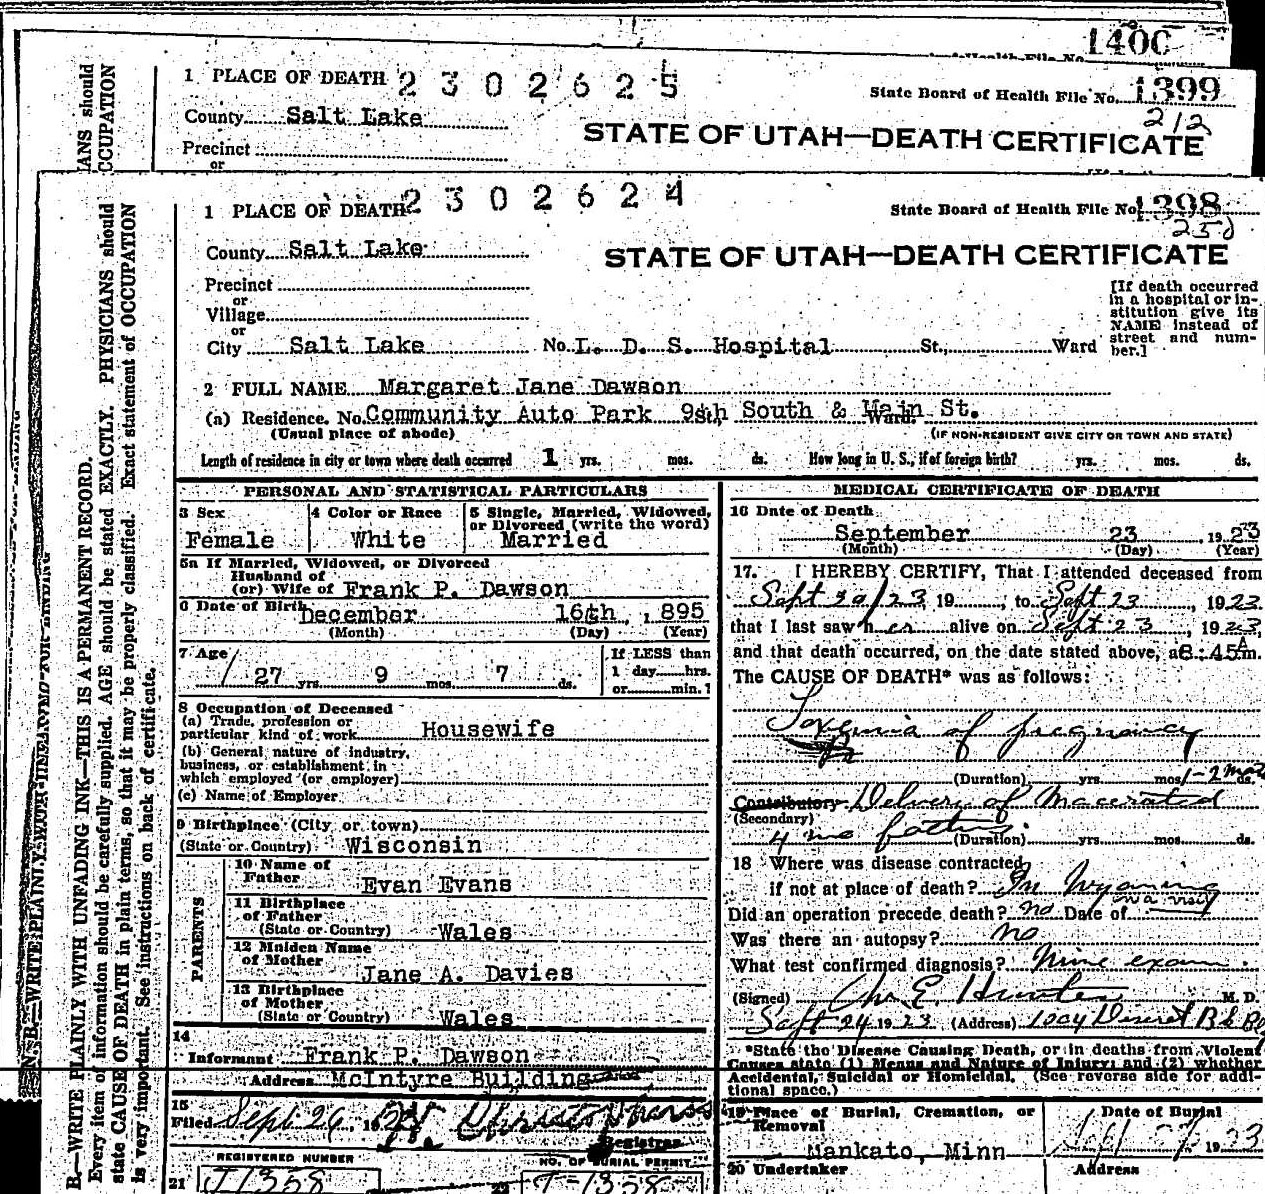 1400
1 PLACE OF DEATH 2302625
State Board of Health File No. 1399
212
County Salt Lake
STATE OF UTAH—DEATH CERTIFICATE
Precinct
or
1 PLACE OF DEATH 2302624
State Board of Health File No. 1398
County Salt Lake
STATE OF UTAH—DEATH CERTIFICATE
Precinct
or
Village
or
City Salt Lake No. L. D. S. Hospital St., Ward
[If death occurred
in a hospital or in-
stitution give its
NAME instead of
street and num-
ber.]
2 FULL NAME Margaret Jane Dawson
(a) Residence. No. Community Auto Park 9th South & Main St. Ward.
(Usual place of abode)
(IF NON-RESIDENT GIVE CITY OR TOWN AND STATE)
Length of residence in city or town where death occurred 1 yrs. mos. ds. How long in U. S., if of foreign birth? yrs. mos. ds.
PERSONAL AND STATISTICAL PARTICULARS
3 Sex
Female
4 Color or Race
White
5 Single, Married, Widowed,
or Divorced (write the word)
Married
5a If Married, Widowed, or Divorced
Husband of
(or) Wife of Frank P. Dawson
6 Date of Birth December 16th, 1895
(Month) (Day) (Year)
7 Age
27 yrs. 9 mos. 7 ds.
If LESS than
1 day hrs.
or min.?
8 Occupation of Deceased
(a) Trade, profession or
particular kind of work Housewife
(b) General nature of industry,
business, or establishment in
which employed (or employer)
(c) Name of Employer
9 Birthplace (City or town)
(State or Country) Wisconsin
PARENTS
10 Name of
Father Evan Evans
11 Birthplace
of Father
(State or Country) Wales
12 Maiden Name
of Mother
Jane A. Davies
13 Birthplace
of Mother
(State or Country) Wales
14
Informant Frank P. Dawson
Address McIntyre Building
15
Filed Sept 24, 192
Registrar
REGISTERED NUMBER
21 J1358
NO. OF BURIAL PERMIT
22 J-1358
MEDICAL CERTIFICATE OF DEATH
16 Date of Death
September 23, 1923
(Month) (Day) (Year)
17. I HEREBY CERTIFY, That I attended deceased from
Sept 20/23 19, to Sept 23, 1923
that I last saw her alive on Sept 23, 1923,
and that death occurred, on the date stated above, at 8:45 A m.
The CAUSE OF DEATH* was as follows:
Toxemia of pregnancy
(Duration) yrs. mos. 1-2 ds.
Contributory Delivery of Macerated
(Secondary)
4 mo
(Duration) yrs. mos. ds.
18 Where was disease contracted
if not at place of death? In Wyoming
on a visit
Did an operation precede death? no Date of
Was there an autopsy? no
What test confirmed diagnosis? exam.
(Signed) E. Hunter M. D.
Sept 24 1923 (Address)
*State the Disease Causing Death, or in deaths from Violent
Causes state (1) Means and Nature of Injury; and (2) whether
Accidental, Suicidal or Homicidal. (See reverse side for addi-
tional space.)
19 Place of Burial, Cremation, or
Removal
Mankato, Minn
Date of Burial
1923
20 Undertaker
Address
N. B.—WRITE PLAINLY WITH UNFADING INK—THIS IS A PERMANENT RECORD.
Every item of information should be carefully supplied. AGE should be stated EXACTLY. PHYSICIANS should
state CAUSE OF DEATH in plain terms, so that it may be properly classified. Exact statement of OCCUPATION
is very important. See instructions on back of certificate.